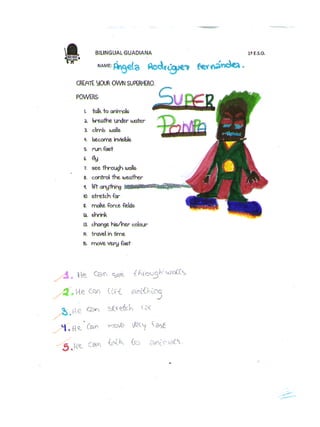 BILINGUAL GUADIANA
1º E.S.O.
NAME: Ángela Rodríguez Fernández.
CREATE YOUR OWN SUPERHERO.
POWERS:
1. talk to animals
2. breathe under water
3. climb walls
4. become invisible
5. run fast
6. fly
7. see through walls
8. control the weather
9. lift anything
10. stretch far
11. make force fields
12. shrink
13. change his/her colour
14. travel in time
15. move very fast
SUPER
POMPA
1. He can see through walls
2. He can lift anithing
3. He can stretch far
4. He can move very fast
5. He can talk to animals